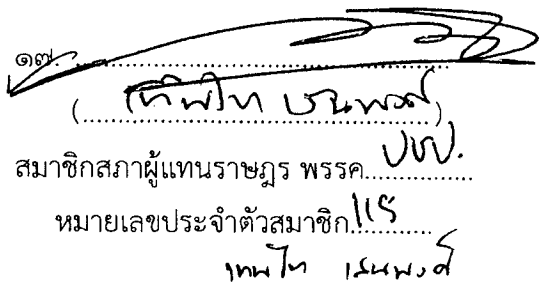 ๑๗. ........................................
(เทพไท เสนพงศ์)
สมาชิกสภาผู้แทนราษฎร พรรค ปชป.
หมายเลขประจำตัวสมาชิก 115
เทพไท เสนพงศ์